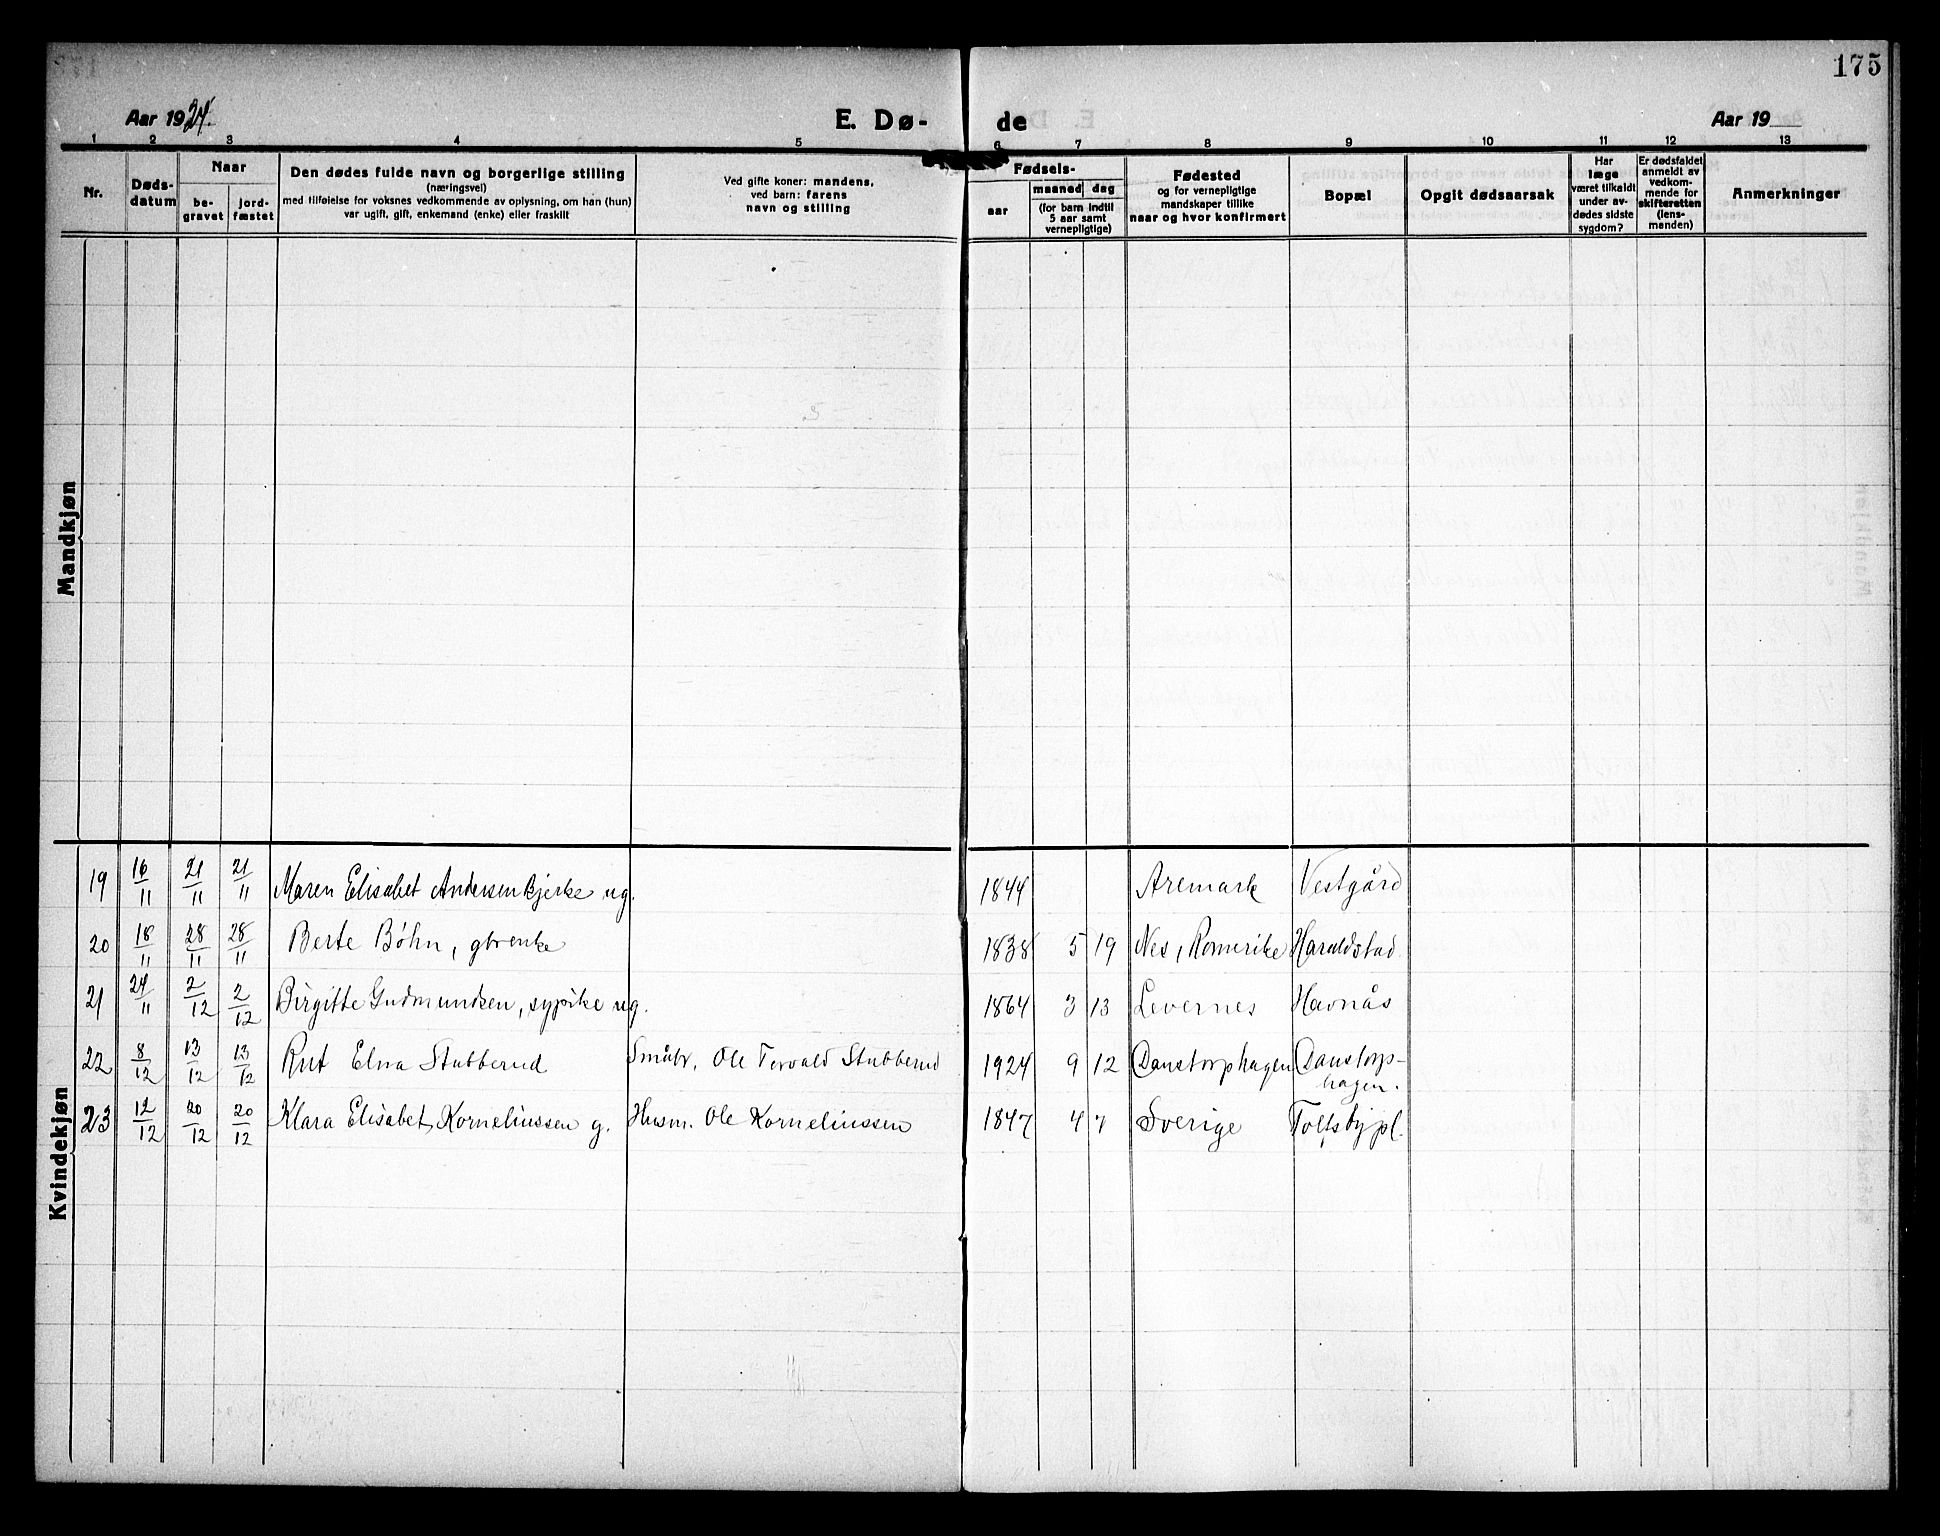 175
Aar 1924. E. Dø- de Aar 19
1 2 3 4 5 6 7 8 9 10 11 12 13
Nr.
Døds-
datum
Naar
be-
gravet
jord-
fæstet
Den dødes fulde navn og borgerlige stilling
(næringsvei)
med tilføielse for voksnes vedkommende av oplysning, om han (hun)
var ugift, gift, enkemand (enke) eller fraskilt
Ved gifte koner: mandens,
ved barn: farens
navn og stilling
Fødsels-
aar
maaned dag
(for barn indtil
5 aar samt
vernepligtige)
Fødested
og for vernepligtige
mandskaper tillike
naar og hvor konfirmert
Bopæl
Opgit dødsaarsak
Har
læge
været tilkaldt
under av-
dødes sidste
sygdom?
Er dødsfaldet
anmeldt av
vedkom-
mende for
skifteretten
(lens-
manden)
Anmerkninger
Mandkjøn
Kvindekjøn
19 16/11 21/11 21/11 Maren Elisabet Andersen Bjerke ug. 1844 Aremark Vestgård
20 18/11 28/11 28/11 Berte Bøhn, gbrenke 1838 5 19 Nes, Romerike Haraldstad
21 24/11 2/12 2/12 Birgitte Gudmundsen, sypike ug. 1864 3 13 Levernes Havnås
22 8/12 13/12 13/12 Rut Elna Stubberud Småbr. Ole Torvald Stubberud 1924 9 12 Danstorphagen Danstorp-
hagen.
23 12/12 20/12 20/12 Klara Elisabet Korneliussen g. Husm. Ole Korneliussen 1847 4 7 Sverige Toltsbypl.